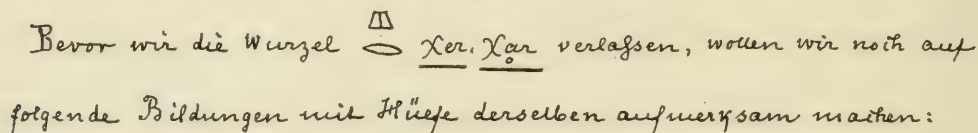 Bevor wir die Wurzel 𓐍𓂋 χer, χạr verlaſsen, wollen wir noch auf
folgende Bildungen mit Hülfe derselben aufmerksam machen: